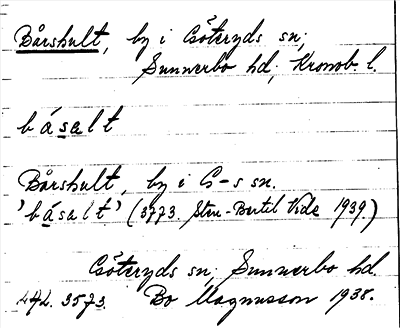 Bårshult, by i Göteryds sn;
Sunnerbo hd, Kronob. l.
básalt
Bårshult, by i G-s sn.
'básalt' (3773. Sten-Bertil Vide 1939.)
Göteryds sn; Sunnerbo hd
3573. Bo Magnusson 1938.